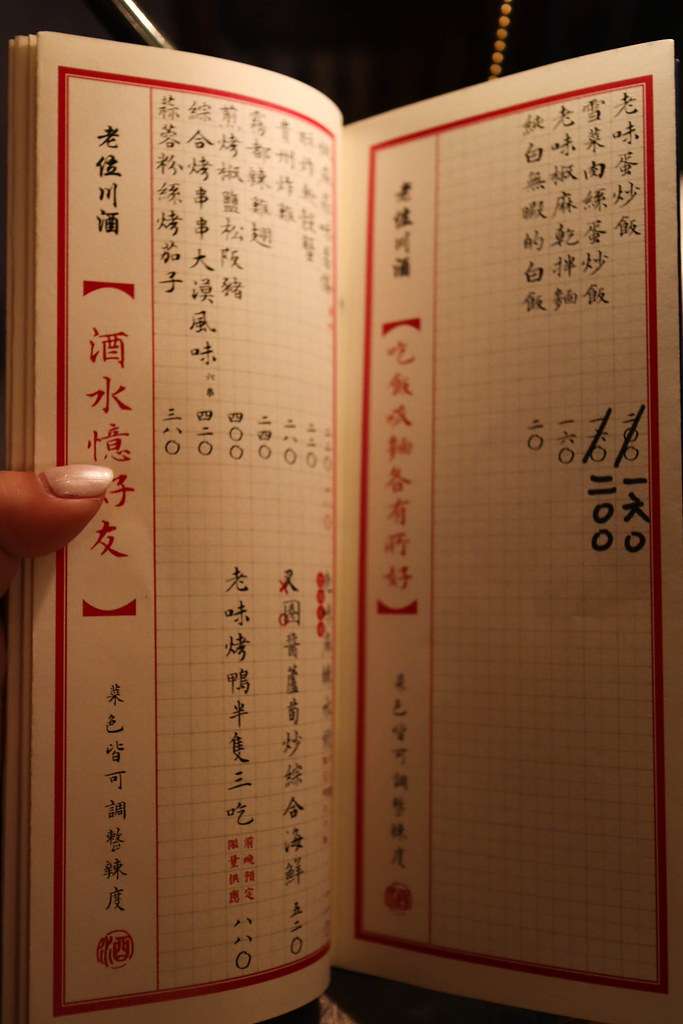 老味蛋炒飯 一六〇
雪菜肉絲蛋炒飯 二〇〇
老味椒麻乾拌麵 一六〇
純白無暇的白飯 二〇
老位川酒
【吃飯 麵各有所好】
菜色皆可調整辣度
酒
貴州炸雞 二八〇
霧都辣雞翅 二四〇
煎烤椒鹽松阪豬 四〇〇
綜合烤串串大漠風味 六串 四二〇
蒜蓉粉絲烤茄子 三八〇
醬蘆筍炒綜合海鮮 五二〇
老味烤鴨半隻三吃 前晚預定 限量供應 八八〇
老位川酒
【酒水憶好友】
菜色皆可調整辣度
酒